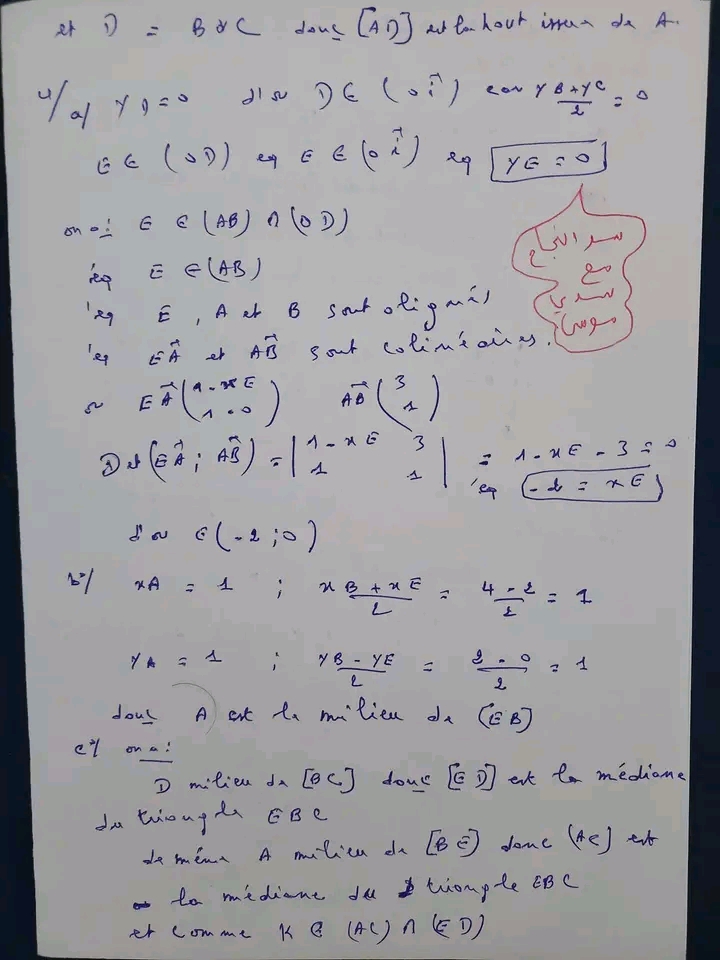 et D = B * C donc [AD] est la haut issue de A.
4/ a/ YD = 0 d'où D ∈ (O i⃗) car (YB + YC)/2 = 0
E ∈ (OD) eq E ∈ (O i⃗) eq YE = 0
on a: E ∈ (AB) ∩ (OD)
éq E ∈ (AB)
éq E, A et B sont alignés
éq EA⃗ et AB⃗ sont colinéaires.
سر النجاح
مع
سيدي
موسى
or EA⃗ (1 - xE ; 1 - 0) AB⃗ (3 ; 1)
Det(EA⃗ ; AB⃗) = |1 - xE 3 ; 1 1| = 1 - xE - 3 = 0
éq -2 = xE
d'où E(-2 ; 0)
b°/ xA = 1 ; (xB + xE)/2 = (4 - 2)/2 = 1
YA = 1 ; (YB - YE)/2 = (2 - 0)/2 = 1
donc A est le milieu de [EB]
c°/ on a:
D milieu de [BC] donc [ED] est la médiane
du triangle EBC
de même A milieu de [BE] donc [AC] est
la médiane du triangle EBC
et comme K ∈ (AC) ∩ (ED)